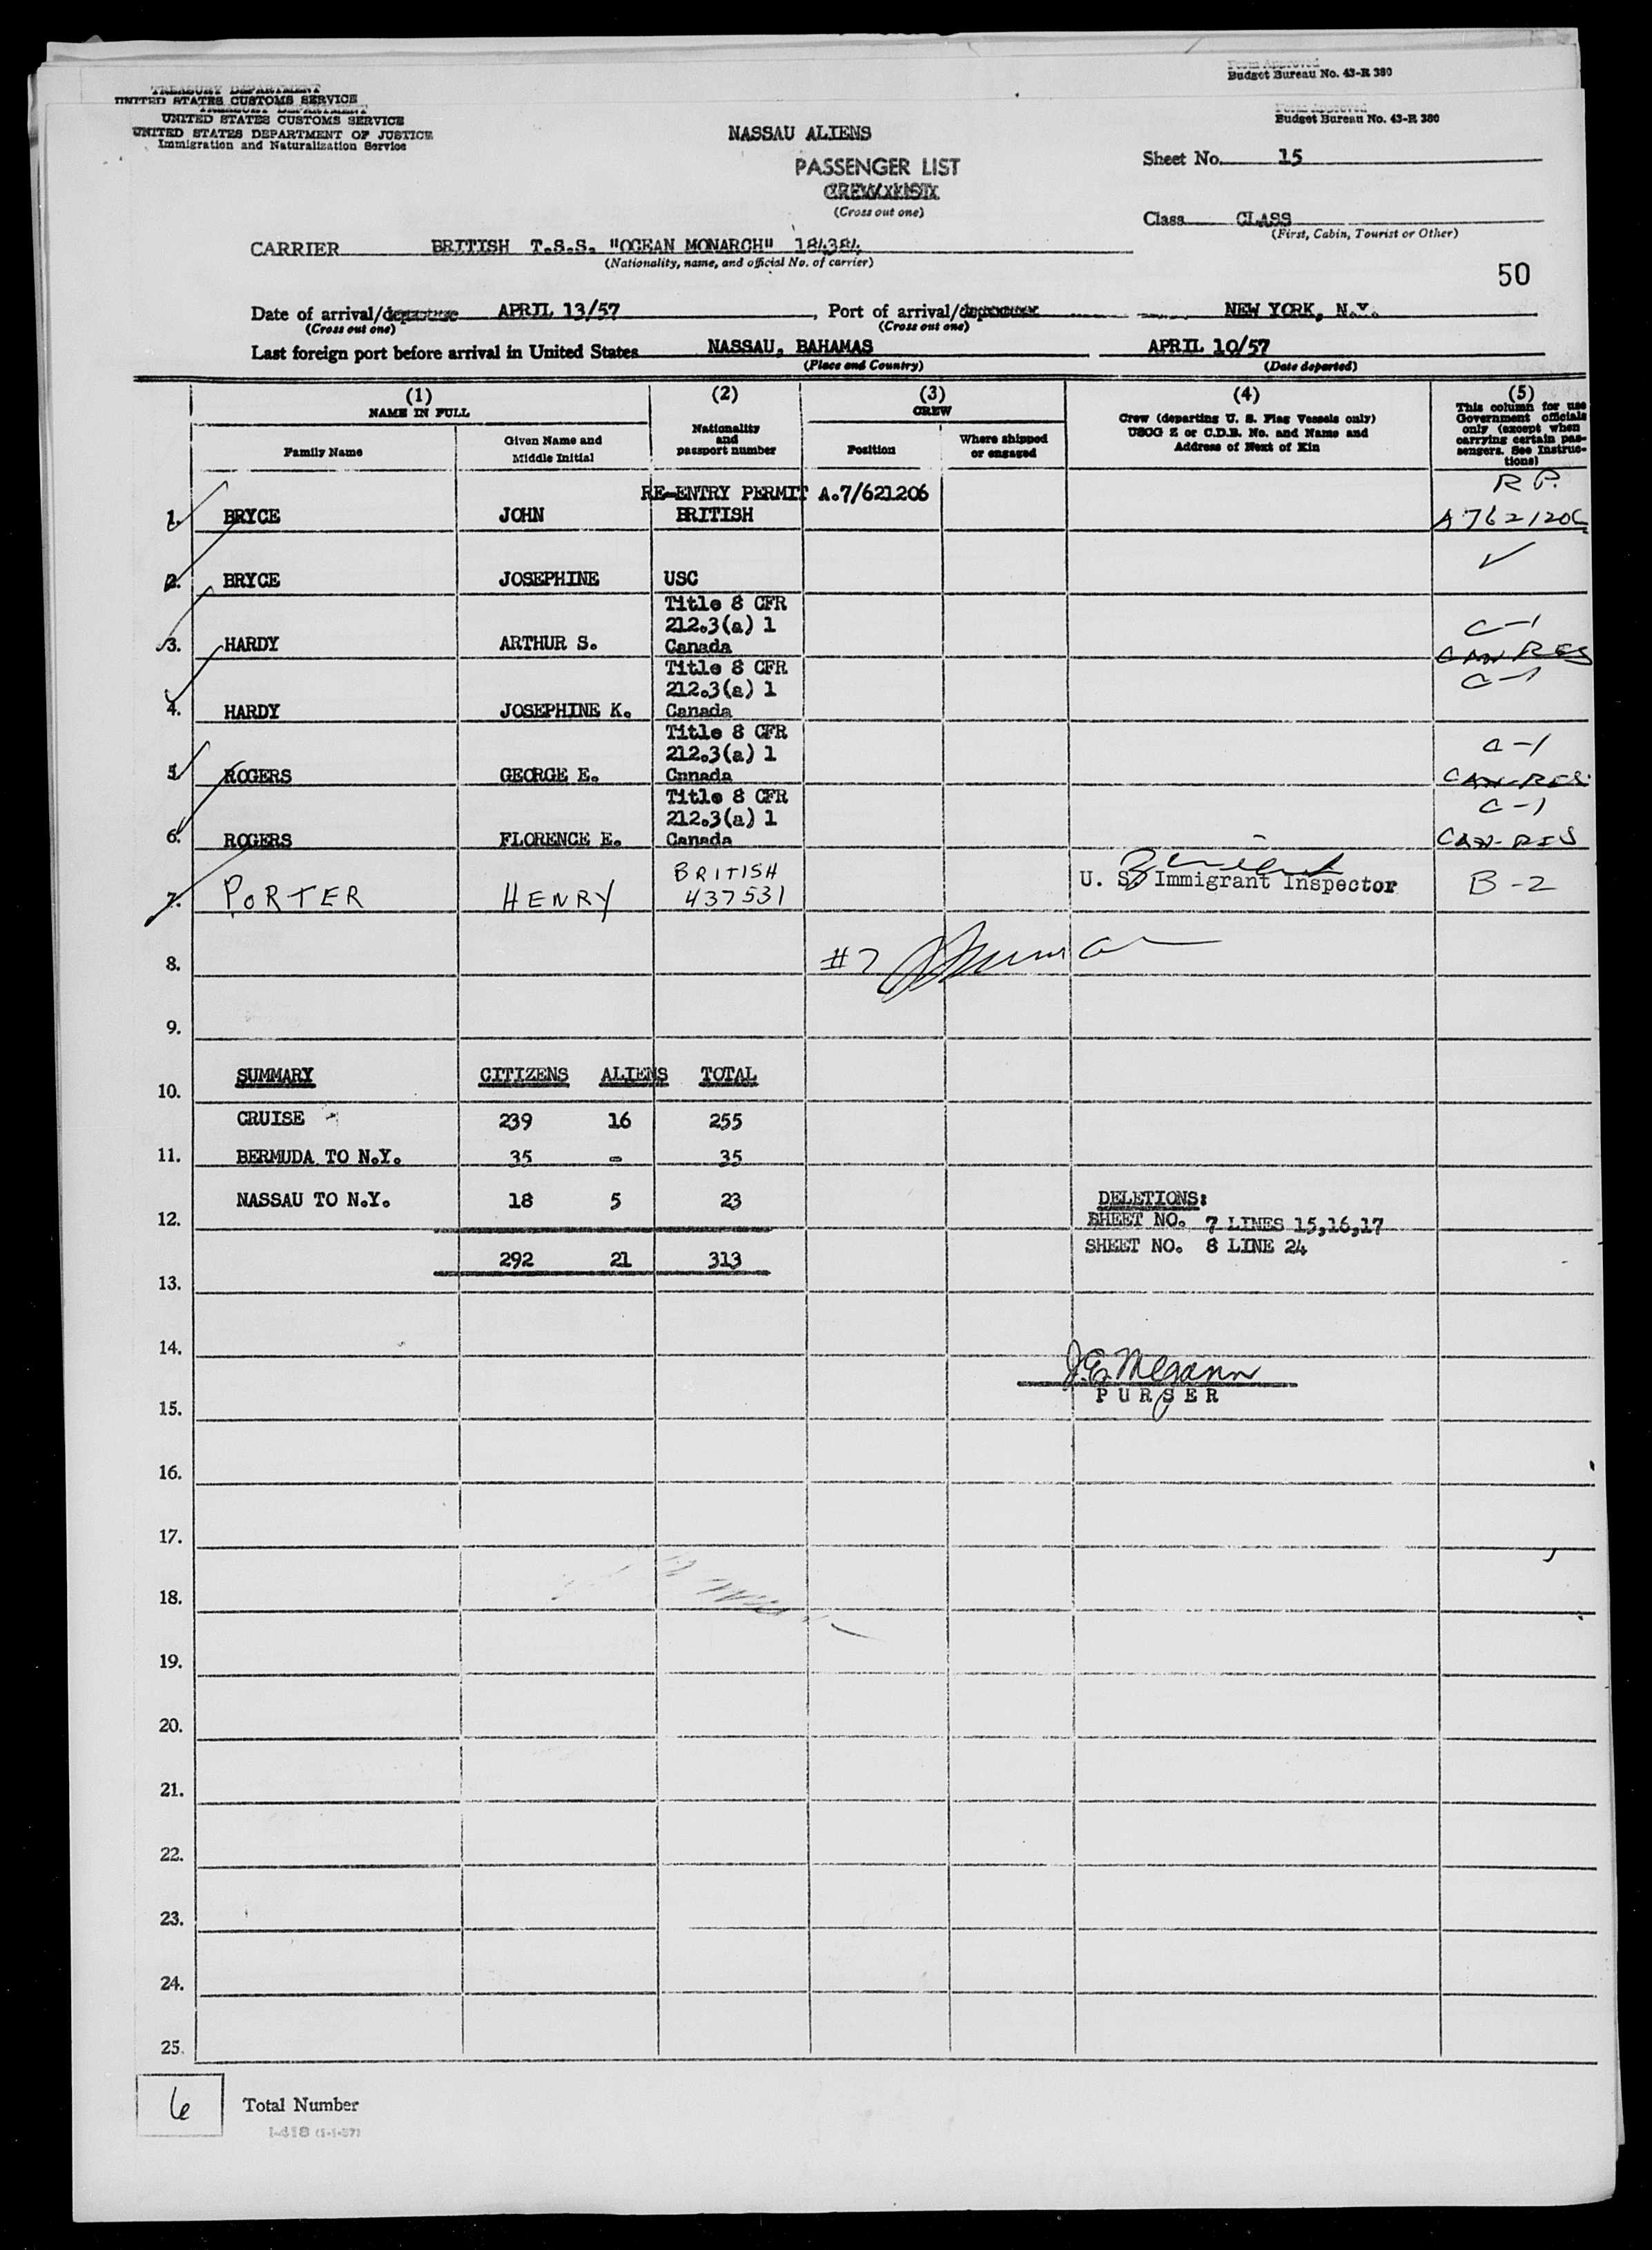 TREASURY DEPARTMENT
UNITED STATES CUSTOMS SERVICE
TREASURY DEPARTMENT
UNITED STATES CUSTOMS SERVICE
UNITED STATES DEPARTMENT OF JUSTICE
Immigration and Naturalization Service
Form Approved
Budget Bureau No. 43-R 380
Form Approved
Budget Bureau No. 43-R 380
NASSAU ALIENS
PASSENGER LIST
(Cross out one)
Sheet No. 15
Class CLASS
(First, Cabin, Tourist or Other)
CARRIER BRITISH T.S.S. "OCEAN MONARCH" 184384
(Nationality, name, and official No. of carrier)
50
Date of arrival/departure APRIL 13/57, Port of arrival/departure NEW YORK, N.Y.
(Cross out one) (Cross out one)
Last foreign port before arrival in United States NASSAU, BAHAMAS APRIL 10/57
(Place and Country) (Date departed)
(1) (2) (3) (4) (5)
NAME IN FULL
Family Name
Given Name and
Middle Initial
Nationality
and
passport number
CREW
Position
Where shipped
or engaged
Crew (departing U. S. Flag Vessels only)
USCG Z or C.D.B. No. and Name and
Address of Next of Kin
This column for use
Government officials
only (except when
carrying certain pas-
sengers. See Instruc-
tions)
RE-ENTRY PERMIT A.7/621206 R P.
1. BRYCE JOHN BRITISH A 7621206
2. BRYCE JOSEPHINE USC ✓
Title 8 CFR
212.3(a) 1 C-1
3. HARDY ARTHUR S. Canada CAN RES
Title 8 CFR
212.3(a) 1 C-1
4. HARDY JOSEPHINE K. Canada
Title 8 CFR
212.3(a) 1 C-1
5. ROGERS GEORGE E. Cnnada CAN-RES
Title 8 CFR
212.3(a) 1 C-1
6. ROGERS FLORENCE E. Canada CAN-RES
BRITISH
U. S. Immigrant Inspector
7. PORTER HENRY 437531 B-2
8. #7
9.
10. SUMMARY CITIZENS ALIENS TOTAL
CRUISE 239 16 255
11. BERMUDA TO N.Y. 35 - 35
NASSAU TO N.Y. 18 5 23 DELETIONS:
12. SHEET NO. 7 LINES 15,16,17
SHEET NO. 8 LINE 24
292 21 313
13.
14.
J.E. McGann
PURSER
15.
16.
17.
18.
19.
20.
21.
22.
23.
24.
25.
6 Total Number
I-418 (1-1-57)